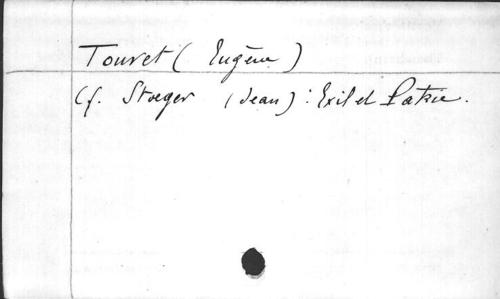 Touret ( Eugène )
Cf. Stoeger (Jean) : Exil et Patrie.